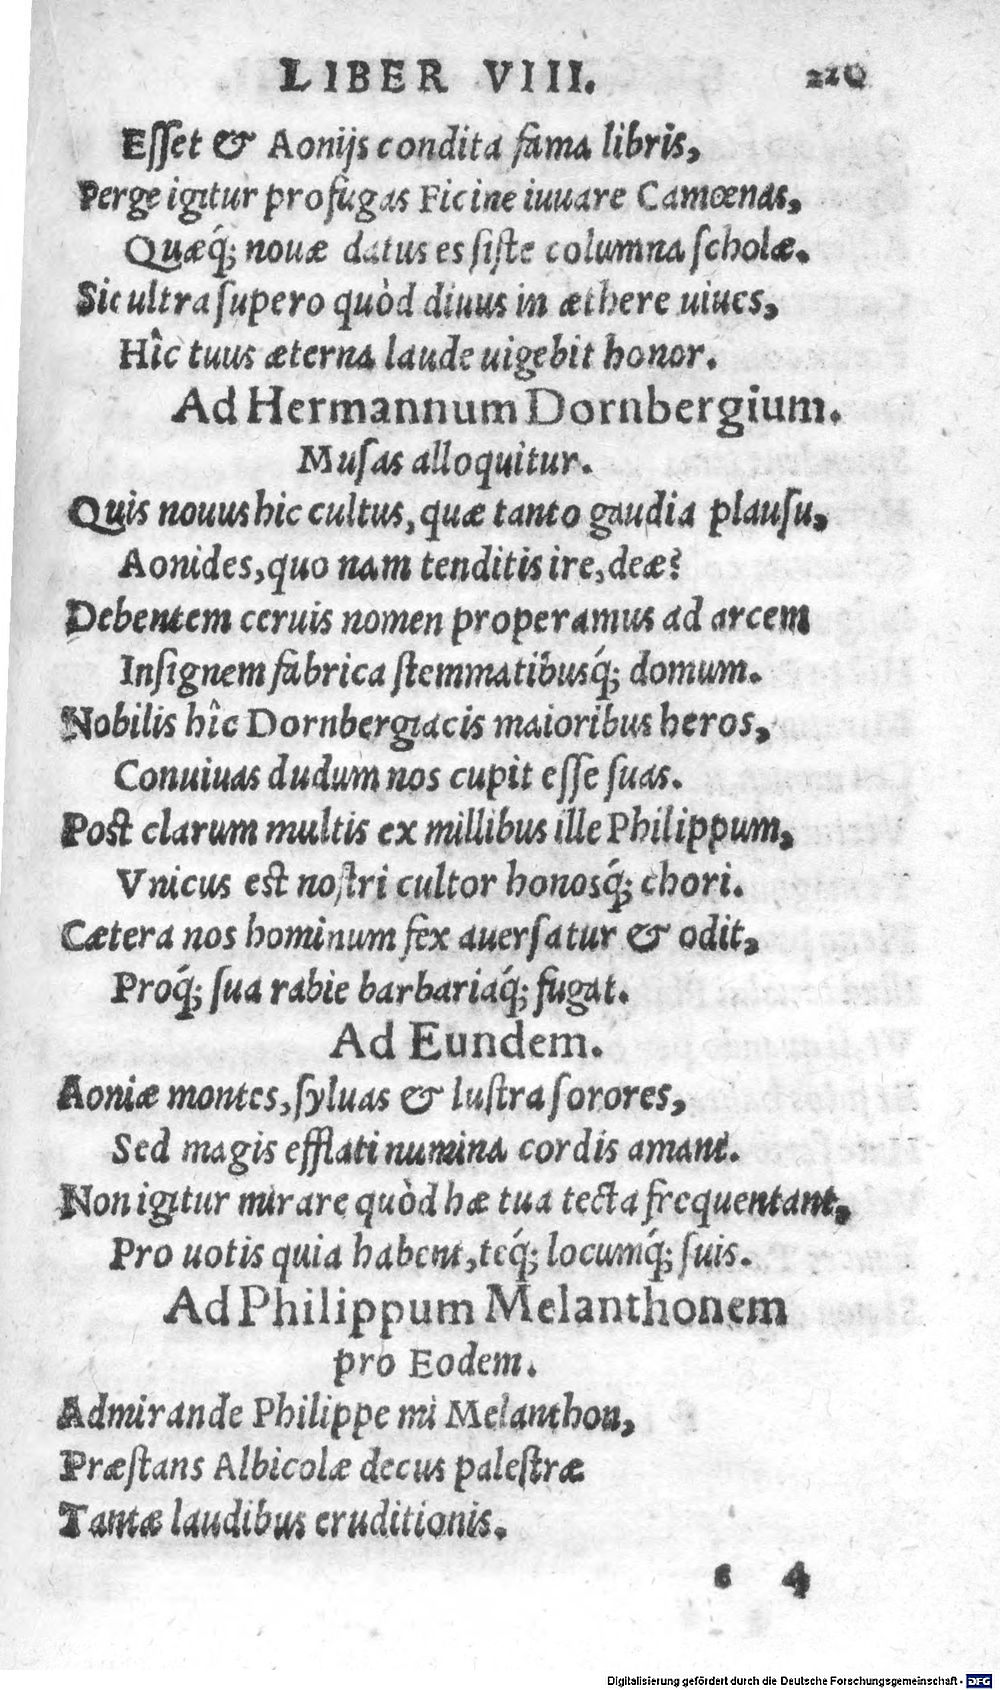 LIBER VIII. 220
Eſſet & Aonijs condita fama libris,
Perge igitur profugas Ficine iuuare Camœnas,
Quæq́; nouæ datus es ſiſte columna ſcholæ.
Sic ultra ſupero quòd diuus in æthere uiues,
Hîc tuus æterna laude uigebit honor.
Ad Hermannum Dornbergium.
Muſas alloquitur.
Quis nouus hic cultus, quæ tanto gaudia plauſu,
Aonides, quo nam tenditis ire, deæ?
Debentem ceruis nomen properamus ad arcem
Inſignem fabrica ſtemmatibusq́; domum.
Nobilis hîc Dornbergiacis maioribus heros,
Conuiuas dudum nos cupit eſſe ſuas.
Poſt clarum multis ex millibus ille Philippum,
Vnicus eſt noſtri cultor honosq́; chori.
Cætera nos hominum fex auerſatur & odit,
Proq́; ſua rabie barbariaq́; fugat.
Ad Eundem.
Aoniæ montes, ſyluas & luſtra ſorores,
Sed magis efflati numina cordis amant.
Non igitur mirare quòd hæ tua tecta frequentant,
Pro uotis quia habent, teq́; locumq́; ſuis.
Ad Philippum Melanthonem
pro Eodem.
Admirande Philippe mi Melanthon,
Præſtans Albicolæ decus paleſtræ
Tantæ laudibus eruditionis.
4
Digitalisierung gefördert durch die Deutsche Forschungsgemeinschaft - DFG